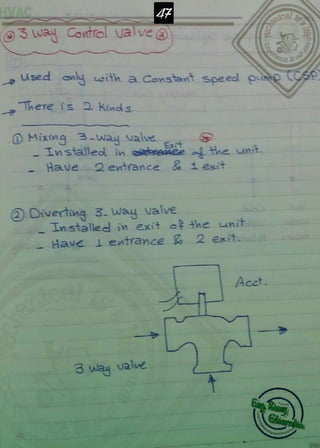 HVAC
47
3 way Control valve
→ Used only with a Constant speed pump (CSP)
→ There is 2 Kinds
① Mixing 3-way valve
- Installed in entrance Exit of the unit.
- Have 2 entrance & 1 exit
② Diverting 3-way valve
- Installed in exit of the unit
- Have 1 entrance & 2 exit.
Acct.
3 way valve